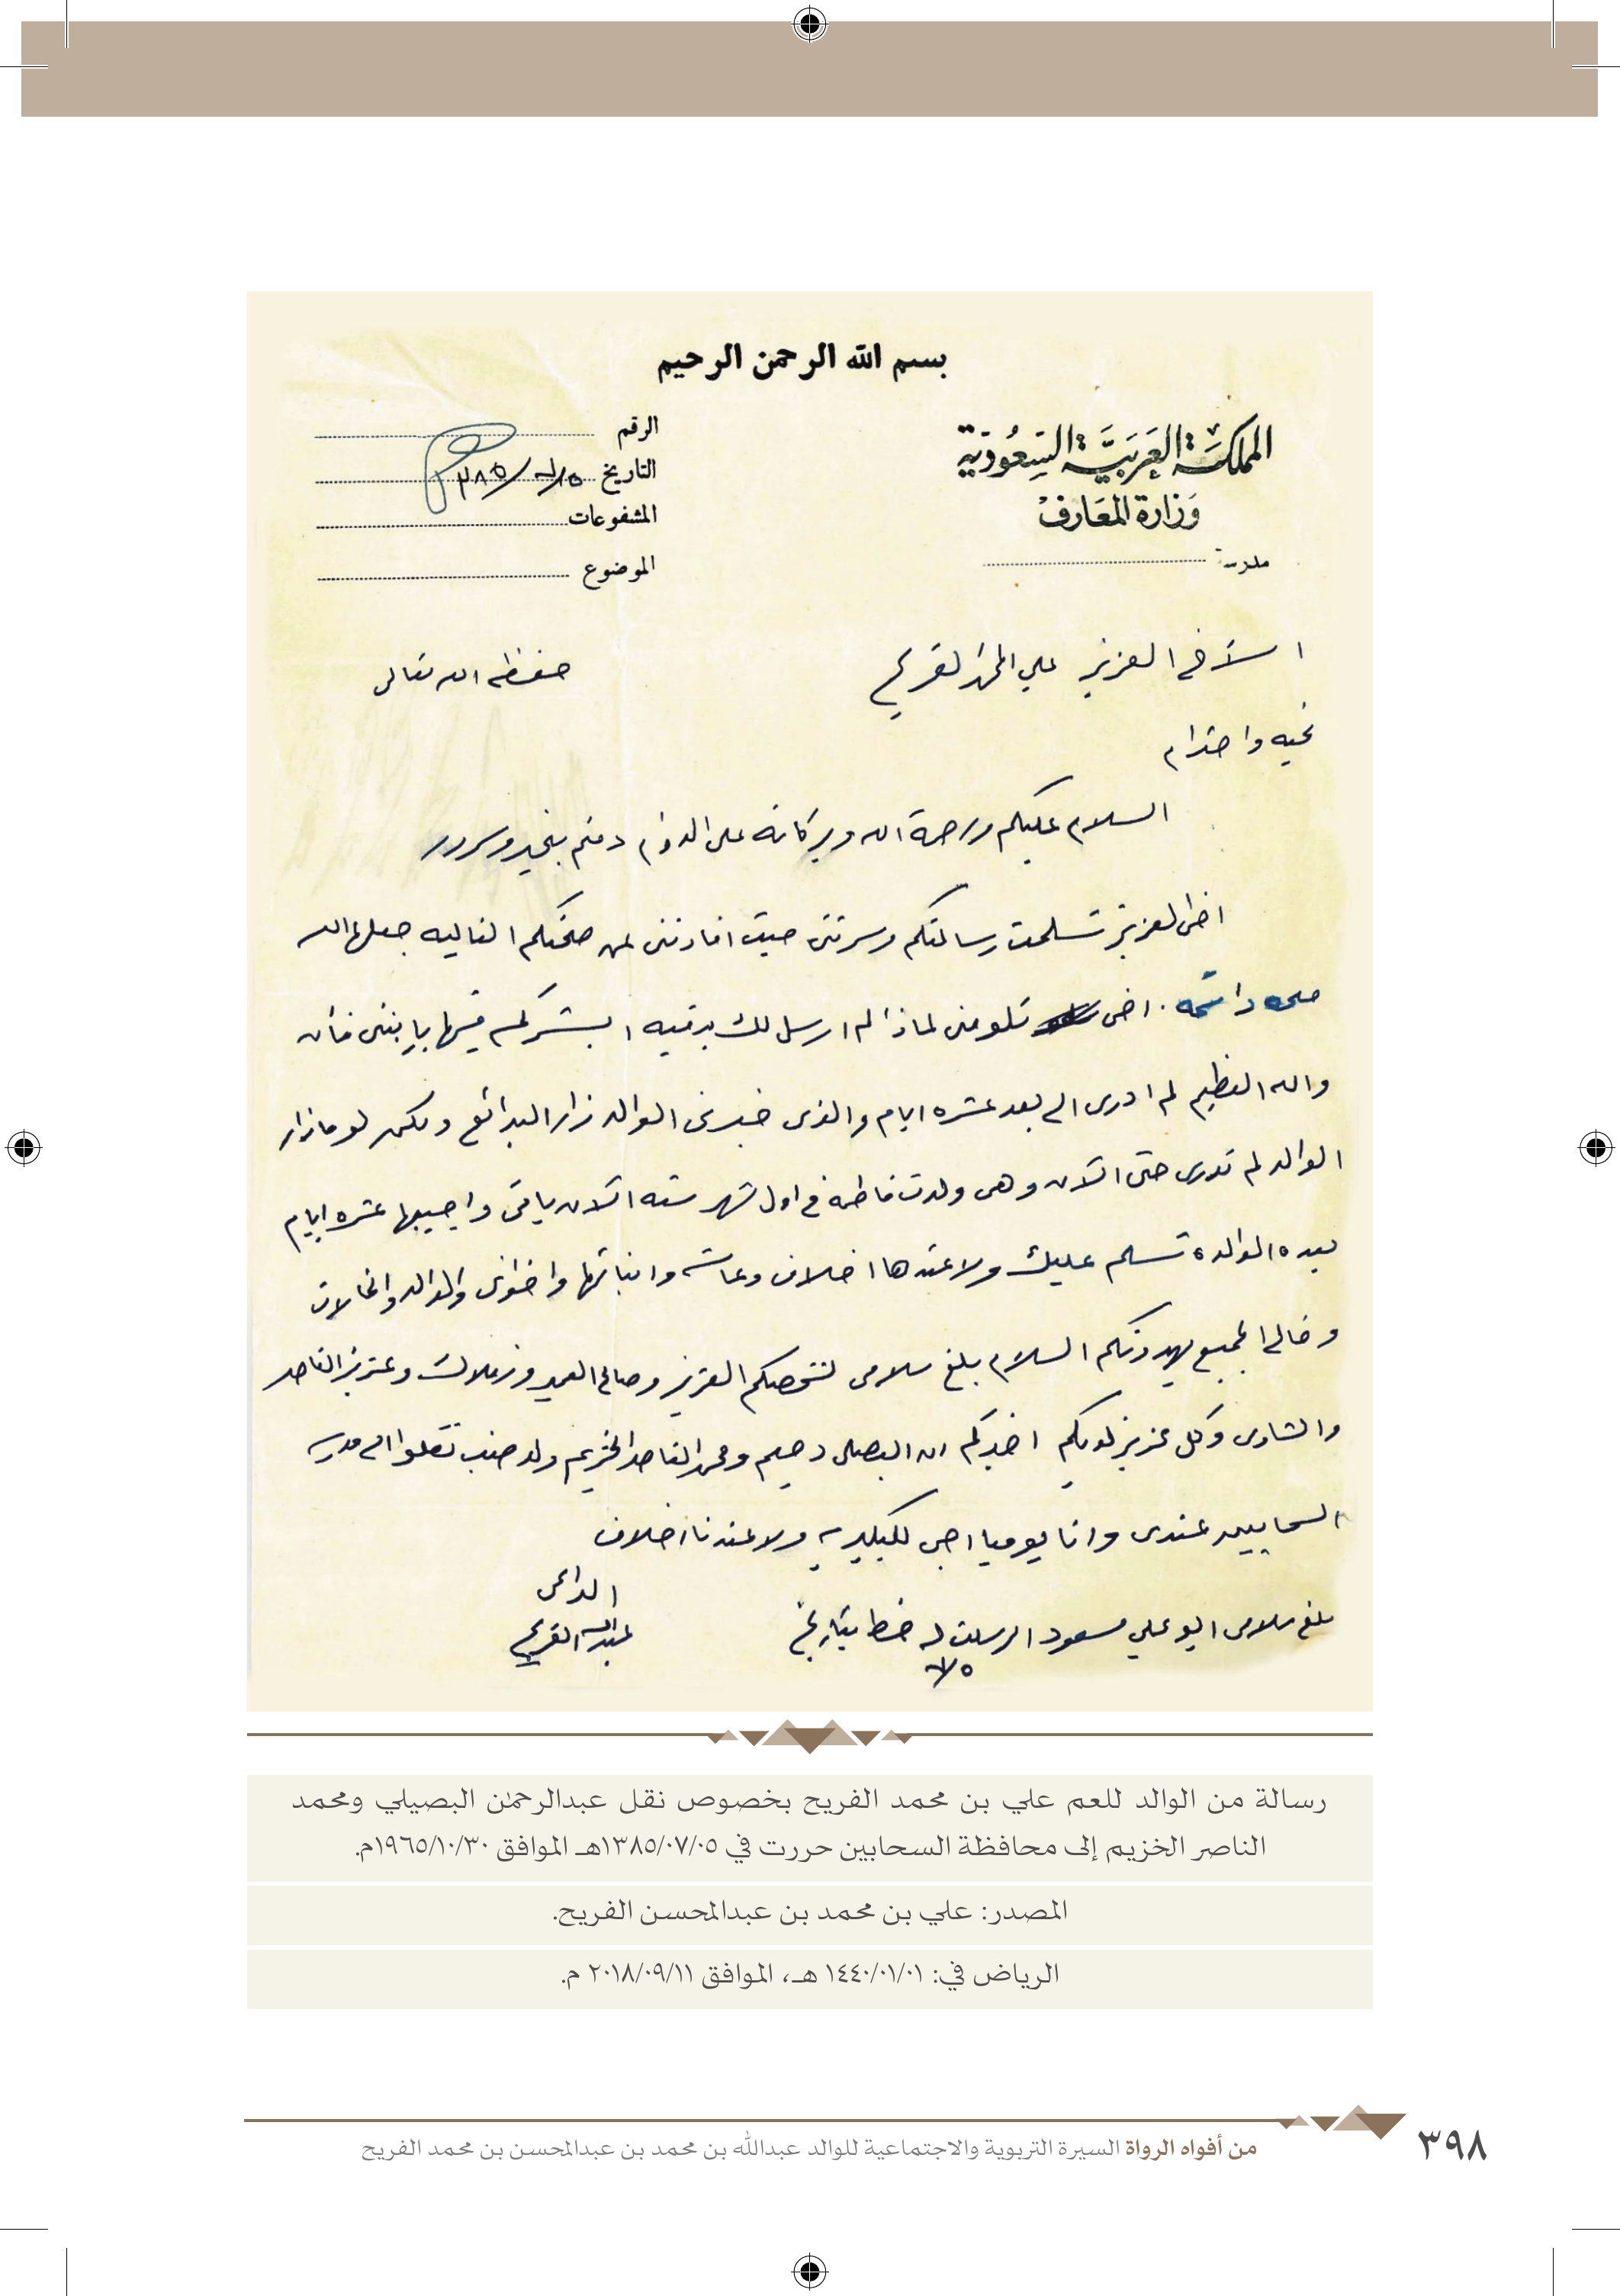 بسم الله الرحمن الرحيم
المملكة العربية السعودية
وزارة المعارف
مدرسة
الرقم
التاريخ ٥ / ٧ / ٣٨٥
المشفوعات
الموضوع
الأخ العزيز علي المحمد الفريح حفظه الله تعالى
تحيه واحترام
السلام عليكم ورحمة الله وبركاته على الدوام دمتم بخير وسرور
اخي العزيز تسلمت رسالتكم وسرتني حيث افادتني عن صحتكم الغاليه جعلها الله
صحه دائمه . اخي تلومني لماذا لم ارسل لك برقيه ابشركم فيها بابنتي فأن
والله العظيم لم ادري الى بعد عشره ايام والذي خبرني الوالد زار البدائع ولكن لو مازار
الوالد لم ندري حتى الآن وهي ولدت فاطمه في اول شهر سته الآن ياتي واجيبها عشره ايام
بعده الوالده تسلم عليك ولا عندها اخلاف وعائشه وابناتها واخواني والوالد والخالات
وخالي الجميع يهدونكم السلام بلغ سلامي لشخصكم العزيز وصالح العمير وزملائك وعزيز الناصر
والشاوي وكل عزيز لديكم اخبركم ان البصيلي دحيم ومحمد الناصر الخزيم ولد نقلوا الى مدرسه
السحابين عندي وانا يوميا اجي للبكيريه ولا عندنا اخلاف
بلغ سلامي ابو علي مسعود ارسلت له خط بتاريخ
٥/٧
الداعي
عبدالله الفريح
رسالة من الوالد للعم علي بن محمد الفريح بخصوص نقل عبدالرحمٰن البصيلي ومحمد
الناصر الخزيم إلى محافظة السحابين حررت في ١٣٨٥/٠٧/٠٥هـ الموافق ١٩٦٥/١٠/٣٠م.
المصدر: علي بن محمد بن عبدالمحسن الفريح.
الرياض في: ١٤٤٠/٠١/٠١ هـ، الموافق ٢٠١٨/٠٩/١١ م.
من أفواه الرواة السيرة التربوية والاجتماعية للوالد عبدالله بن محمد بن عبدالمحسن بن محمد الفريح
٣٩٨